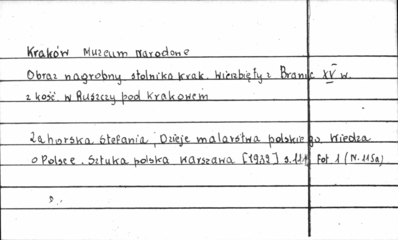 Kraków Muzeum Narodowe
Obraz nagrobny stolnika krak. Wierzbięty z Branic XV w.
z kość. w Ruszczy pod Krakowem
Zahorska Stefania, Dzieje malarstwa polskiego. Wiedza
o Polsce. Sztuka polska Warszawa [1932] s. 111 Fot. 1 (N. 115a)
D.